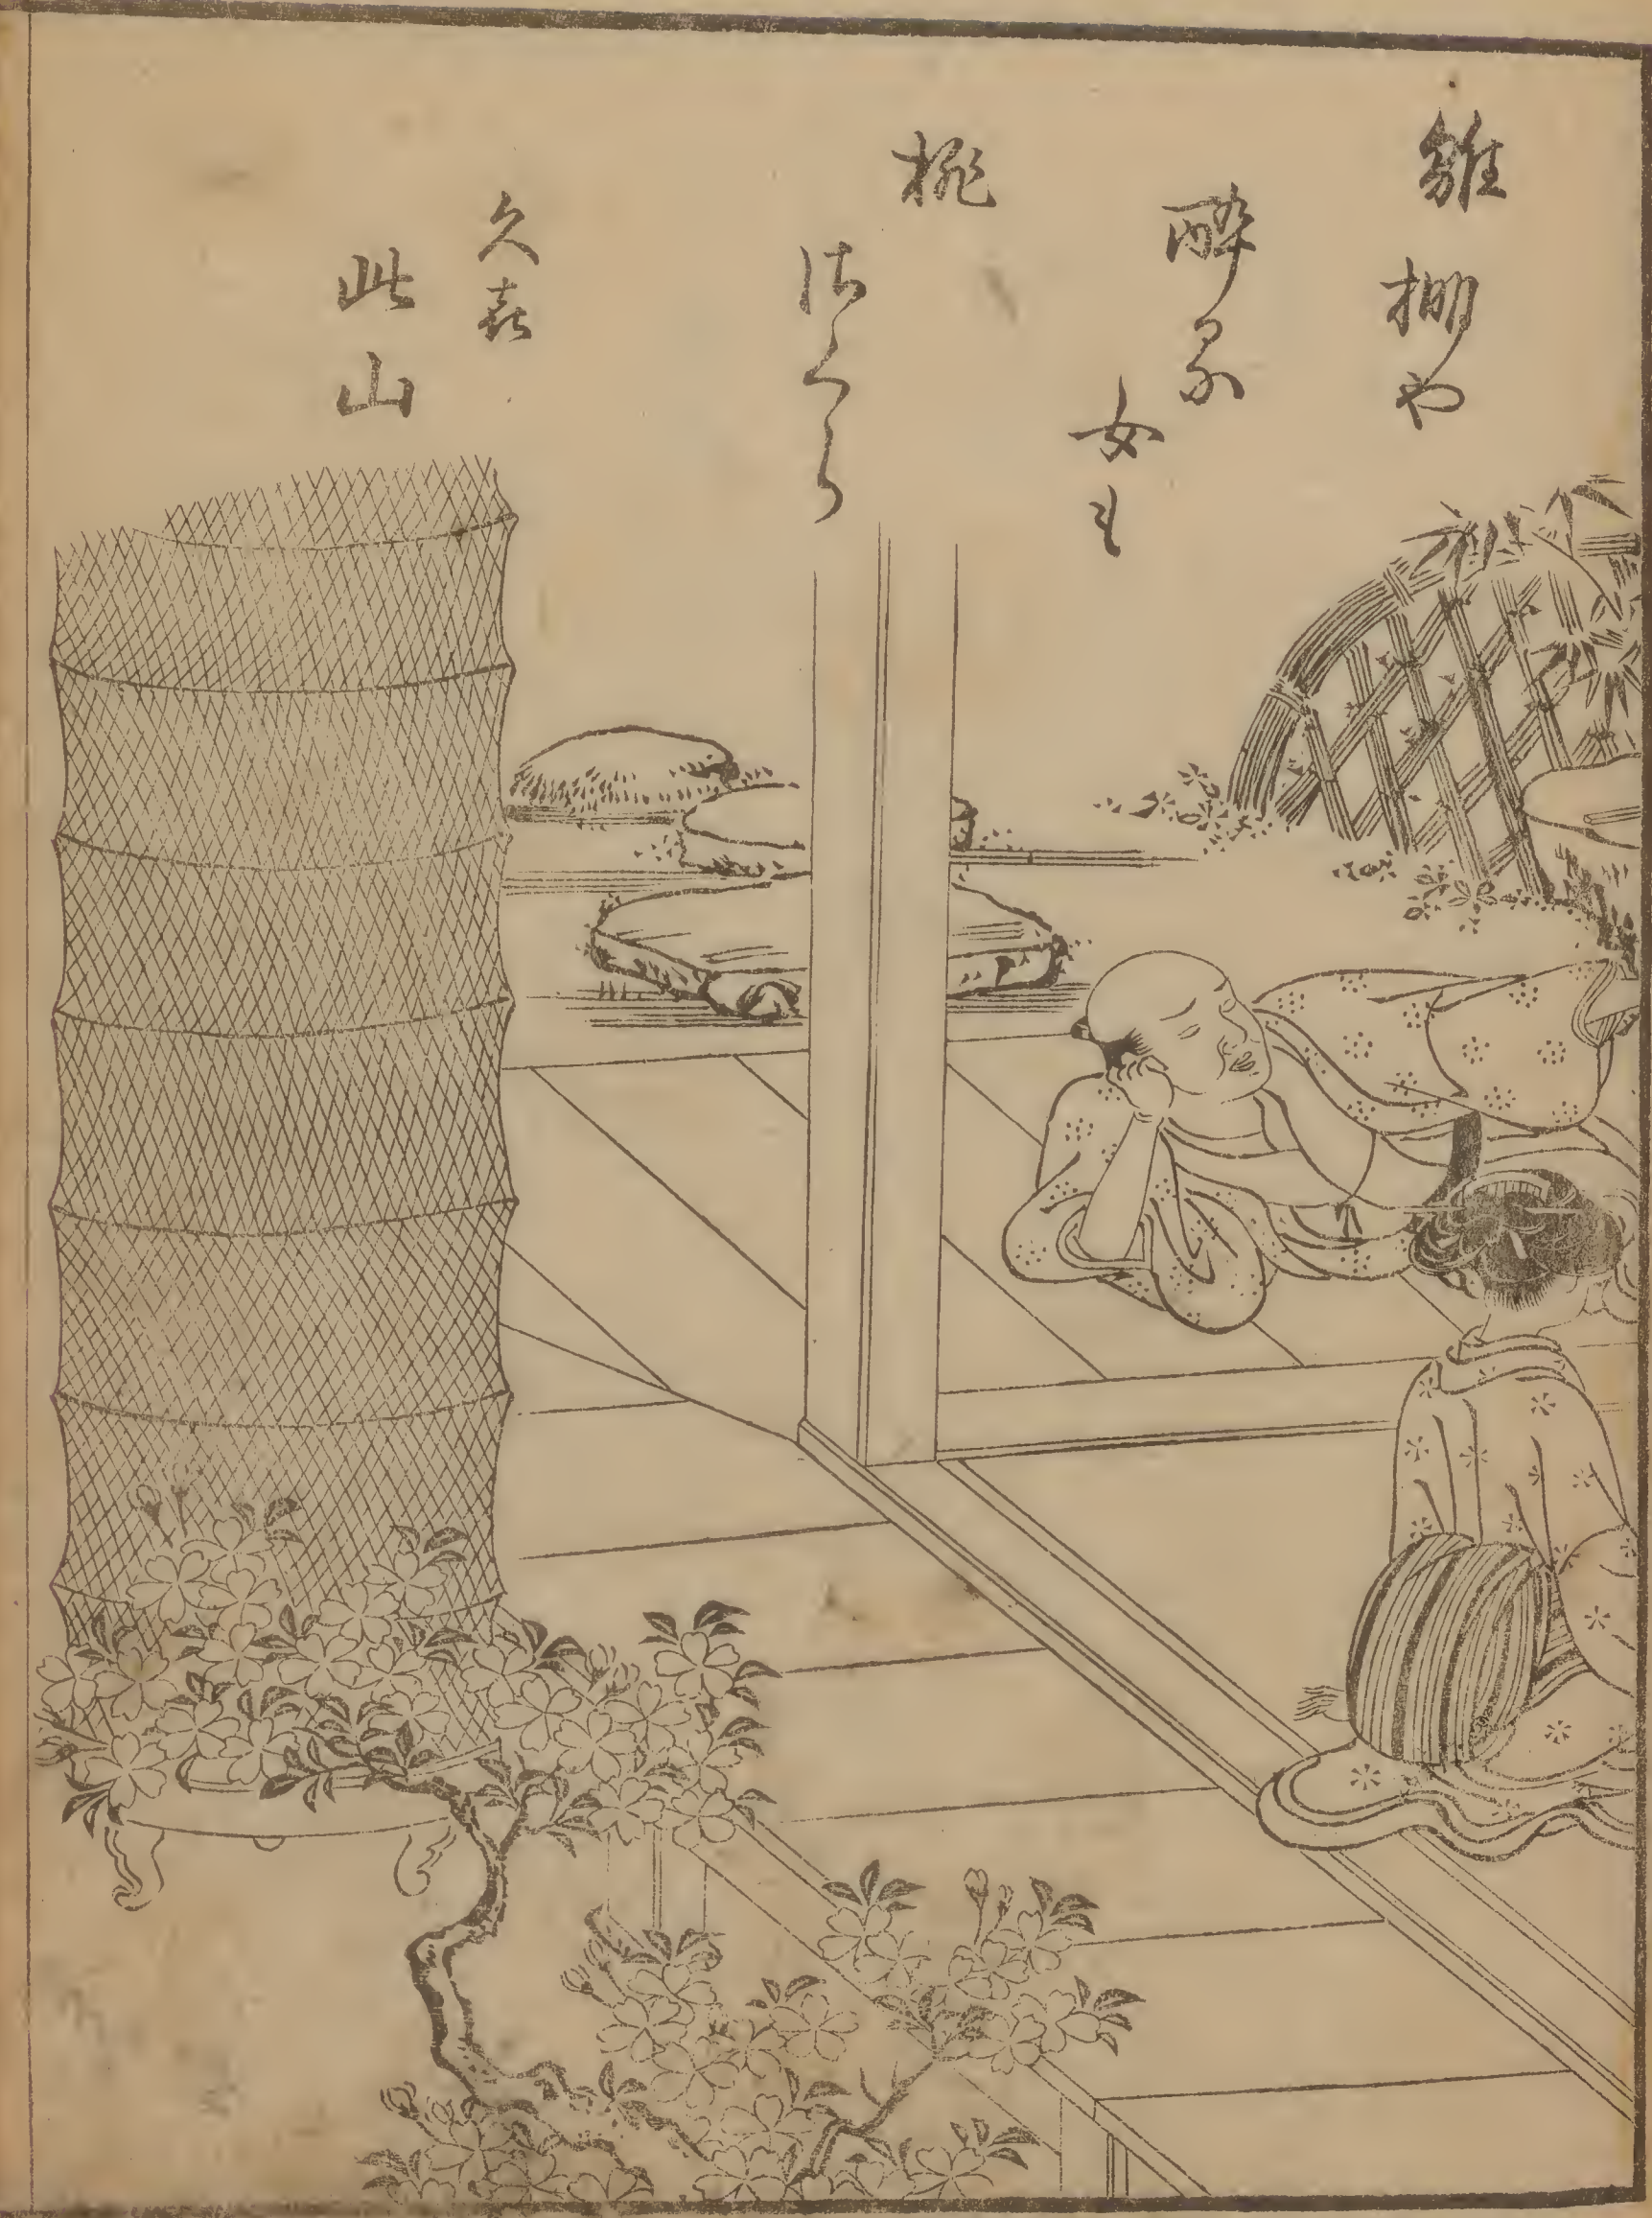 雛棚や
酔る
女も
桃
さくら
久喜
此山